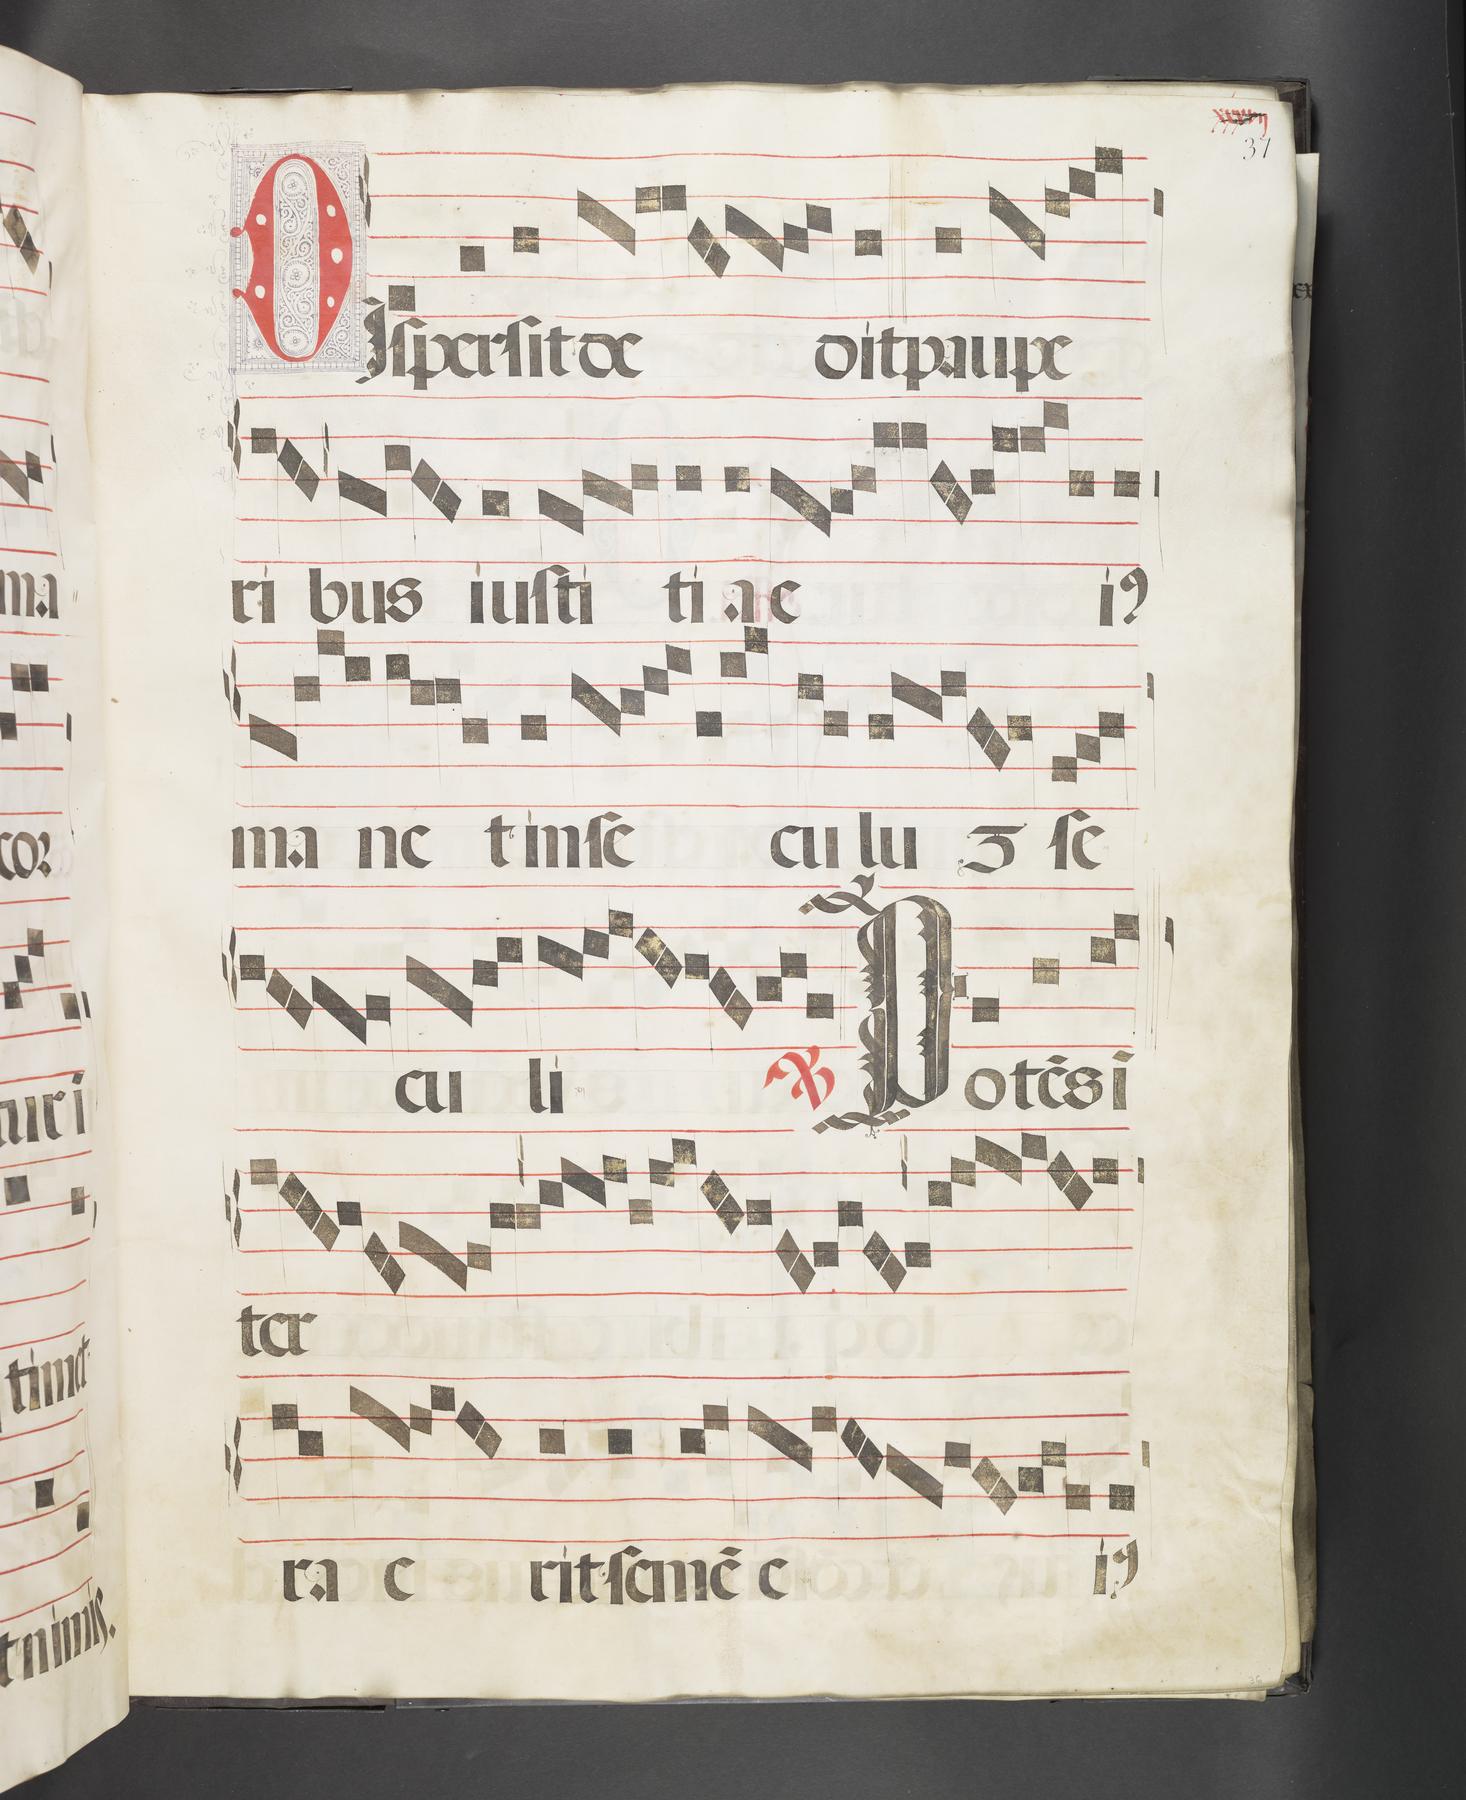 37
DIspersit de dit paupe
ri bus iusti ti ae i9
ma ne t in se cu lu 3 se
cu li ℣ Potēs i
ter
ra e rit semē e i9
ma
cor
turi
timet
t nimis.
36